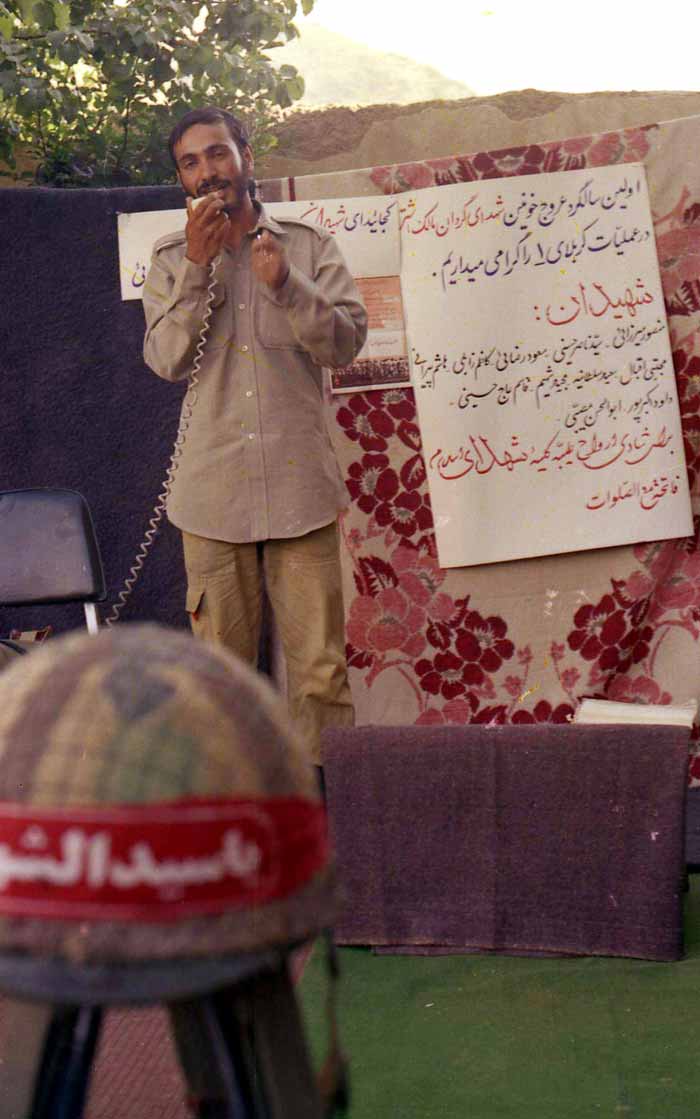 اولین سالگرد عروج خونین شهدای گردان مالک اشتر
در عملیات کربلای ۱ را گرامی میداریم.
شهیدان:
منصور میرزائی. سید ناصر حسینی. مسعود رضائی. کاظم زاملی. هاشم پیرانی
مجتبی اقبال. سعید سلطانیه. مجید هشیم. قاسم حاج حسینی.
داود اکبرپور. ابوالحسن مصیبی.
برای شادی ارواح طیبه کلیه شهدای اسلام
فاتحه مع الصلوات
کجائید ای شهیدان
یا سید الشه